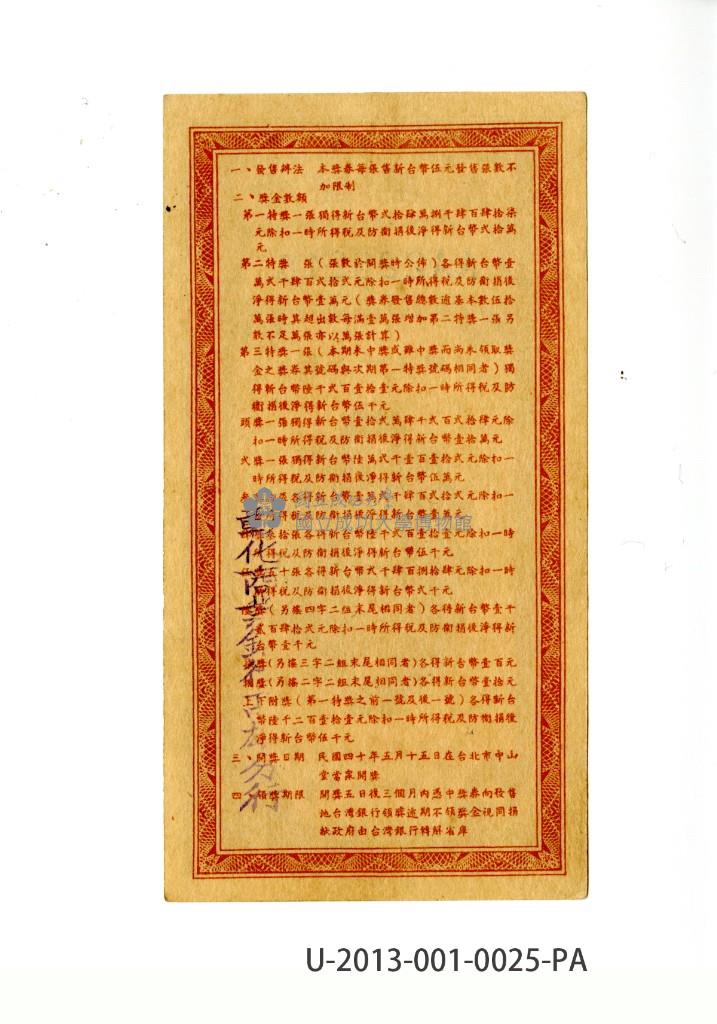 一、發售辦法 本獎券每張售新台幣伍元發售張數不
加限制
二、獎金數額
第一特獎一張獨得新台幣弍拾肆萬捌千肆百肆拾柒
元除扣一時所得稅及防衛捐後淨得新台幣弍拾萬
元
第二特獎 張(張數於開獎時公佈)各得新台幣壹
萬弍千肆百弍拾弍元除扣一時所得稅及防衛捐後
淨得新台幣壹萬元(獎券發售總數逾基本數伍拾
萬張時其超出數每滿壹萬張增加第二特獎一張另
數不足萬張亦以萬張計算)
第三特獎一張(本期未中獎或雖中獎而尚未領取獎
金之獎券其號碼與次期第一特獎號碼相同者)獨
得新台幣陸千弍百壹拾壹元除扣一時所得稅及防
衛捐後淨得新台幣伍千元
頭獎一張獨得新台幣壹拾弍萬肆千弍百弍拾肆元除
扣一時所得稅及防衛捐後淨得新台幣壹拾萬元
弍獎一張獨得新台幣陸萬弍千壹百壹拾弍元除扣一
時所得稅及防衛捐後淨得新台幣伍萬元
各得新台幣壹萬弍千肆百弍拾弍元除扣一
得稅及防衛捐後淨得新台幣壹萬元
張各得新台幣陸千弍百壹拾壹元除扣一時
得稅及防衛捐後淨得新台幣伍千元
五十張各得新台幣弍千肆百捌拾肆元除扣一時
得稅及防衛捐後淨得新台幣弍千元
獎(另搖四字二組末尾相同者)各得新台幣壹千
貳百肆拾弍元除扣一時所得稅及防衛捐後淨得新
台幣壹千元
獎(另搖三字二組末尾相同者)各得新台幣壹百元
獎(另搖二字二組末尾相同者)各得新台幣壹拾元
上下附獎(第一特獎之前一號及後一號)各得新台
幣陸千二百壹拾壹元除扣一時所得稅及防衛捐後
淨得新台幣伍千元
三、開獎日期 民國四十年五月十五日在台北市中山
堂當眾開獎
四、領獎期限 開獎五日後三個月內憑中獎券向發售
地台灣銀行領獎逾期不領獎金視同捐
獻政府由台灣銀行轉解省庫
國立成功大學博物館
U-2013-001-0025-PA